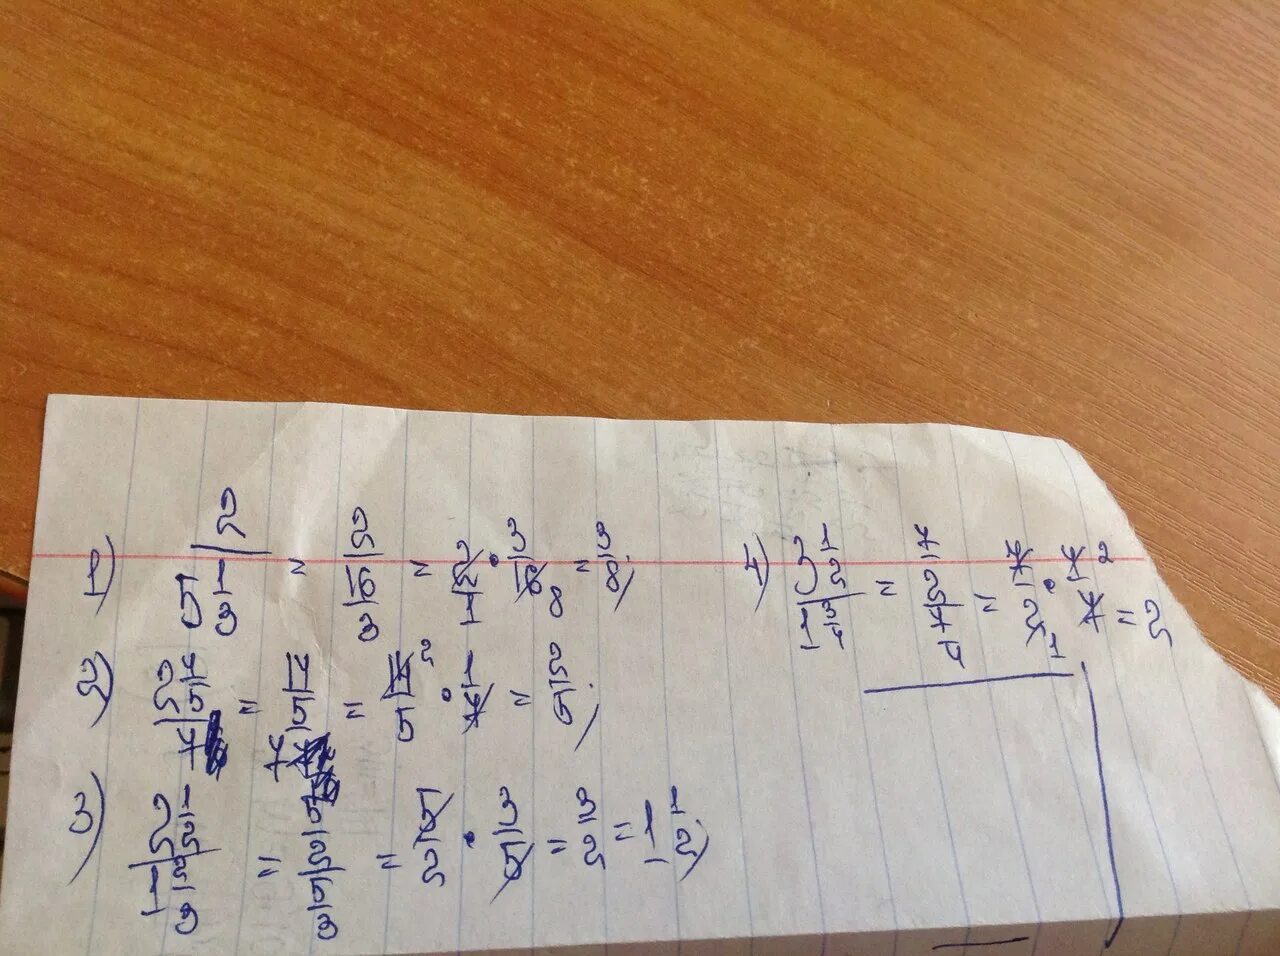 1) 2/(5 1/3) = 2/(16/3) = 2/1 · 3/16 8 = 3/8;
2) (2 4/5)/7 = (14/5)/7 = 14/5 2 · 1/7 = 2/5;
3) (2 1/2)/(1 2/3) = (5/2)/(5/3) = 5/2 · 3/5 = 3/2 = 1 1/2;
4) (3 1/2)/(1 3/4) = (7/2)/(7/4) = 7/2 1 · 4/7 2 = 2